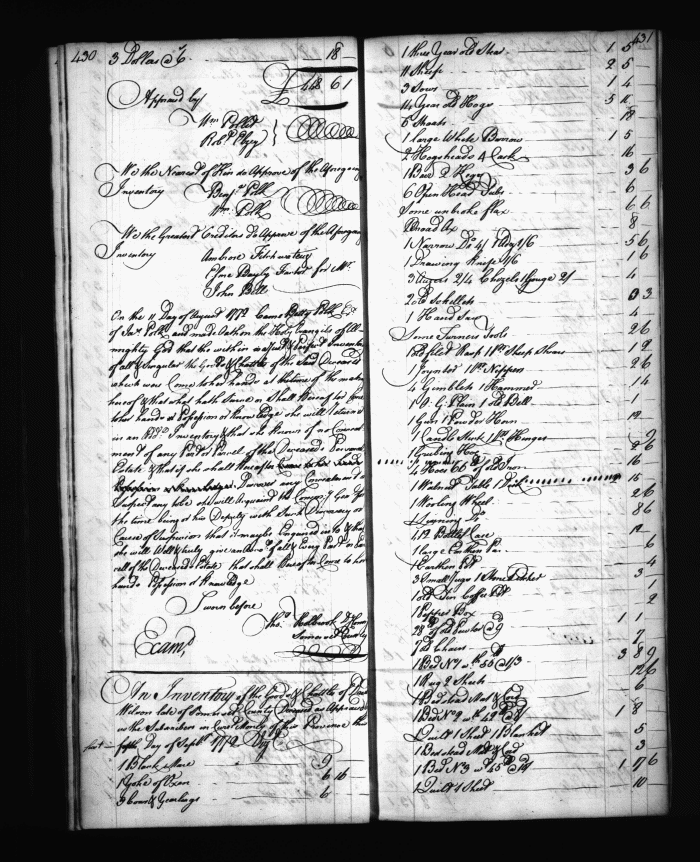 430
3 Dollars @ 6 18
£ 448 6 1
Appraised by
Wm Pollitt
Robt Elzey
We the Nearest of Kin do Approve of the Aforegoing
Inventory Benja Polk
Wm Polk
We the Greatest Creditors do Approve of the Aforegoing
Inventory Ambrose Fitchwaters
Esme Bayly Factor for Mr
John Bell
On the 11 Day of August 1772 Came Betty Polk
of Polk and made Oath on the Holy Evangels of All-
mighty God that the within is a Just & Perfect Inventory
of all & Singular the Goods & Chattles of the Said Deceased
which were Come to her hands at the time of the making
hereof & that what hath Since or Shall hereafter
to her hands or Possession or Knowledge she will return
in an Inventory & that she knows of no Conceal
ment of any Part or Parcel of the Deceased's Personal
Estate & that if she shall hereafter
Possession or knowledge Discover any Concealment or
Suspect any to be she will Acquaint the
the time being or his Deputy with Such Discovery or
Cause of Suspicion that it may be Enquired into & that
she will Well & truly give an of all & Every Part or Par-
cell of the Deceased Estate that shall hereafter Come to her
hands Possession or Knowledge
Sworn before
Thos Holbrook D Comy
Somerset County
Examd
An Inventory of the Goods & Chattles of David
Wilson late of Somerset County Deceased as Appraised
by the Subscribers in Current Money of this Province the
fifth Day of Septr 1772
1 Black Mare 9
1 Yoke of Oxen 6 16
3 Cows & Yearlings 6
431
1 three Year old Stear 1 5
11 Sheep 2 5
3 Sows 1 4
14 year old Hogs 5
6 Shoats 18
1 large White Barrow 1 5
2 Hogsheads 4 Cask 16
1 3 6
6 Open Head Tubs 6
Some unbroke flax 6 6
Broad Ax 8
1 Narrow Do 4/ 1/6 5 6
1 Drawing Knife 1/6 1 6
3 Augers 2/4 Chizels 1 Gouge 2/ 4
2 old Skellets 3
1 Hand Saw 4
Some Turners Tools 2 6
1 old file 1 Rasp 1 Pr Sheep Shears 1 9
1 Joynter 1 Pr Nippers 2 6
4 Gimblets 1 Hammer 1 4
1 Plain 1 old Bell 1
1 Gun 1 Powder Horn 12
1 Candle Stick 1 Pr Hinges 9
1 Grubing Hoe 2 6
7 Hoes old Iron 16
1 Walnut Table 1 15
1 Wooling Wheel 2 6
1 Linning Do 8 6
4 Bottles Case 12
1 large Earthen Pan 6
1 Earthen Pot 4
3 Small Jugs 1 Stone Pitcher 3
1 old Tin Coffee Pot 1
1 Pepper Box 2
28 old Pewter @ 9 1 1
7 old Chairs 7
1 Bed No 1 wt 55 @ 1/3 3 8 9
1 Rug 2 Sheets 12 6
1 Bedstead Mat & Cord 6
1 Bed No 2 wt 42 1 8
1 Quilt 1 Sheet 1 Blanket 5
1 Bedstead Mat & Cord 3
1 Bed No 3 wt 45 1 17 6
1 Quilt 1 Sheet 10